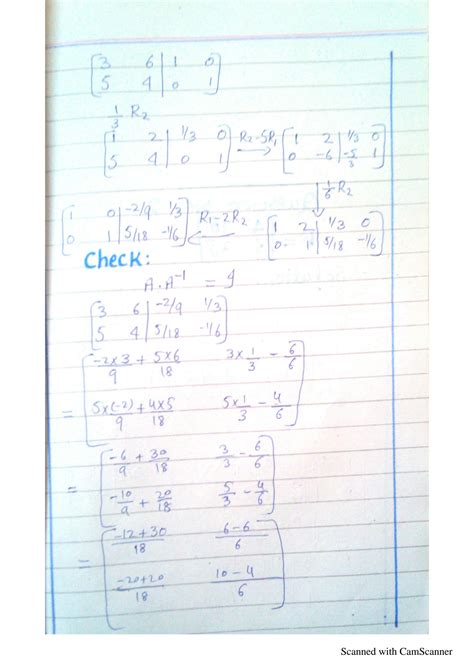 [3 6 | 1 0
5 4 | 0 1]
1/3 R2
[1 2 | 1/3 0
5 4 | 0 1] R2-5R1 → [1 2 | 1/3 0
0 -6 | -5/3 1]
↓ 1/6 R2
[1 0 | -2/9 1/3
0 1 | 5/18 -1/6] R1-2R2 ← [1 2 | 1/3 0
0 1 | 5/18 -1/6]
Check:
A.A⁻¹ = I
[3 6 | -2/9 1/3
5 4 | 5/18 -1/6]
= [-2×3/9 + 5×6/18 3×1/3 - 6/6
5×(-2)/9 + 4×5/18 5×1/3 - 4/6]
= [-6/9 + 30/18 3/3 - 6/6
-10/9 + 20/18 5/3 - 4/6]
= [-12+30/18 6-6/6
-20+20/18 10-4/6]
Scanned with CamScanner